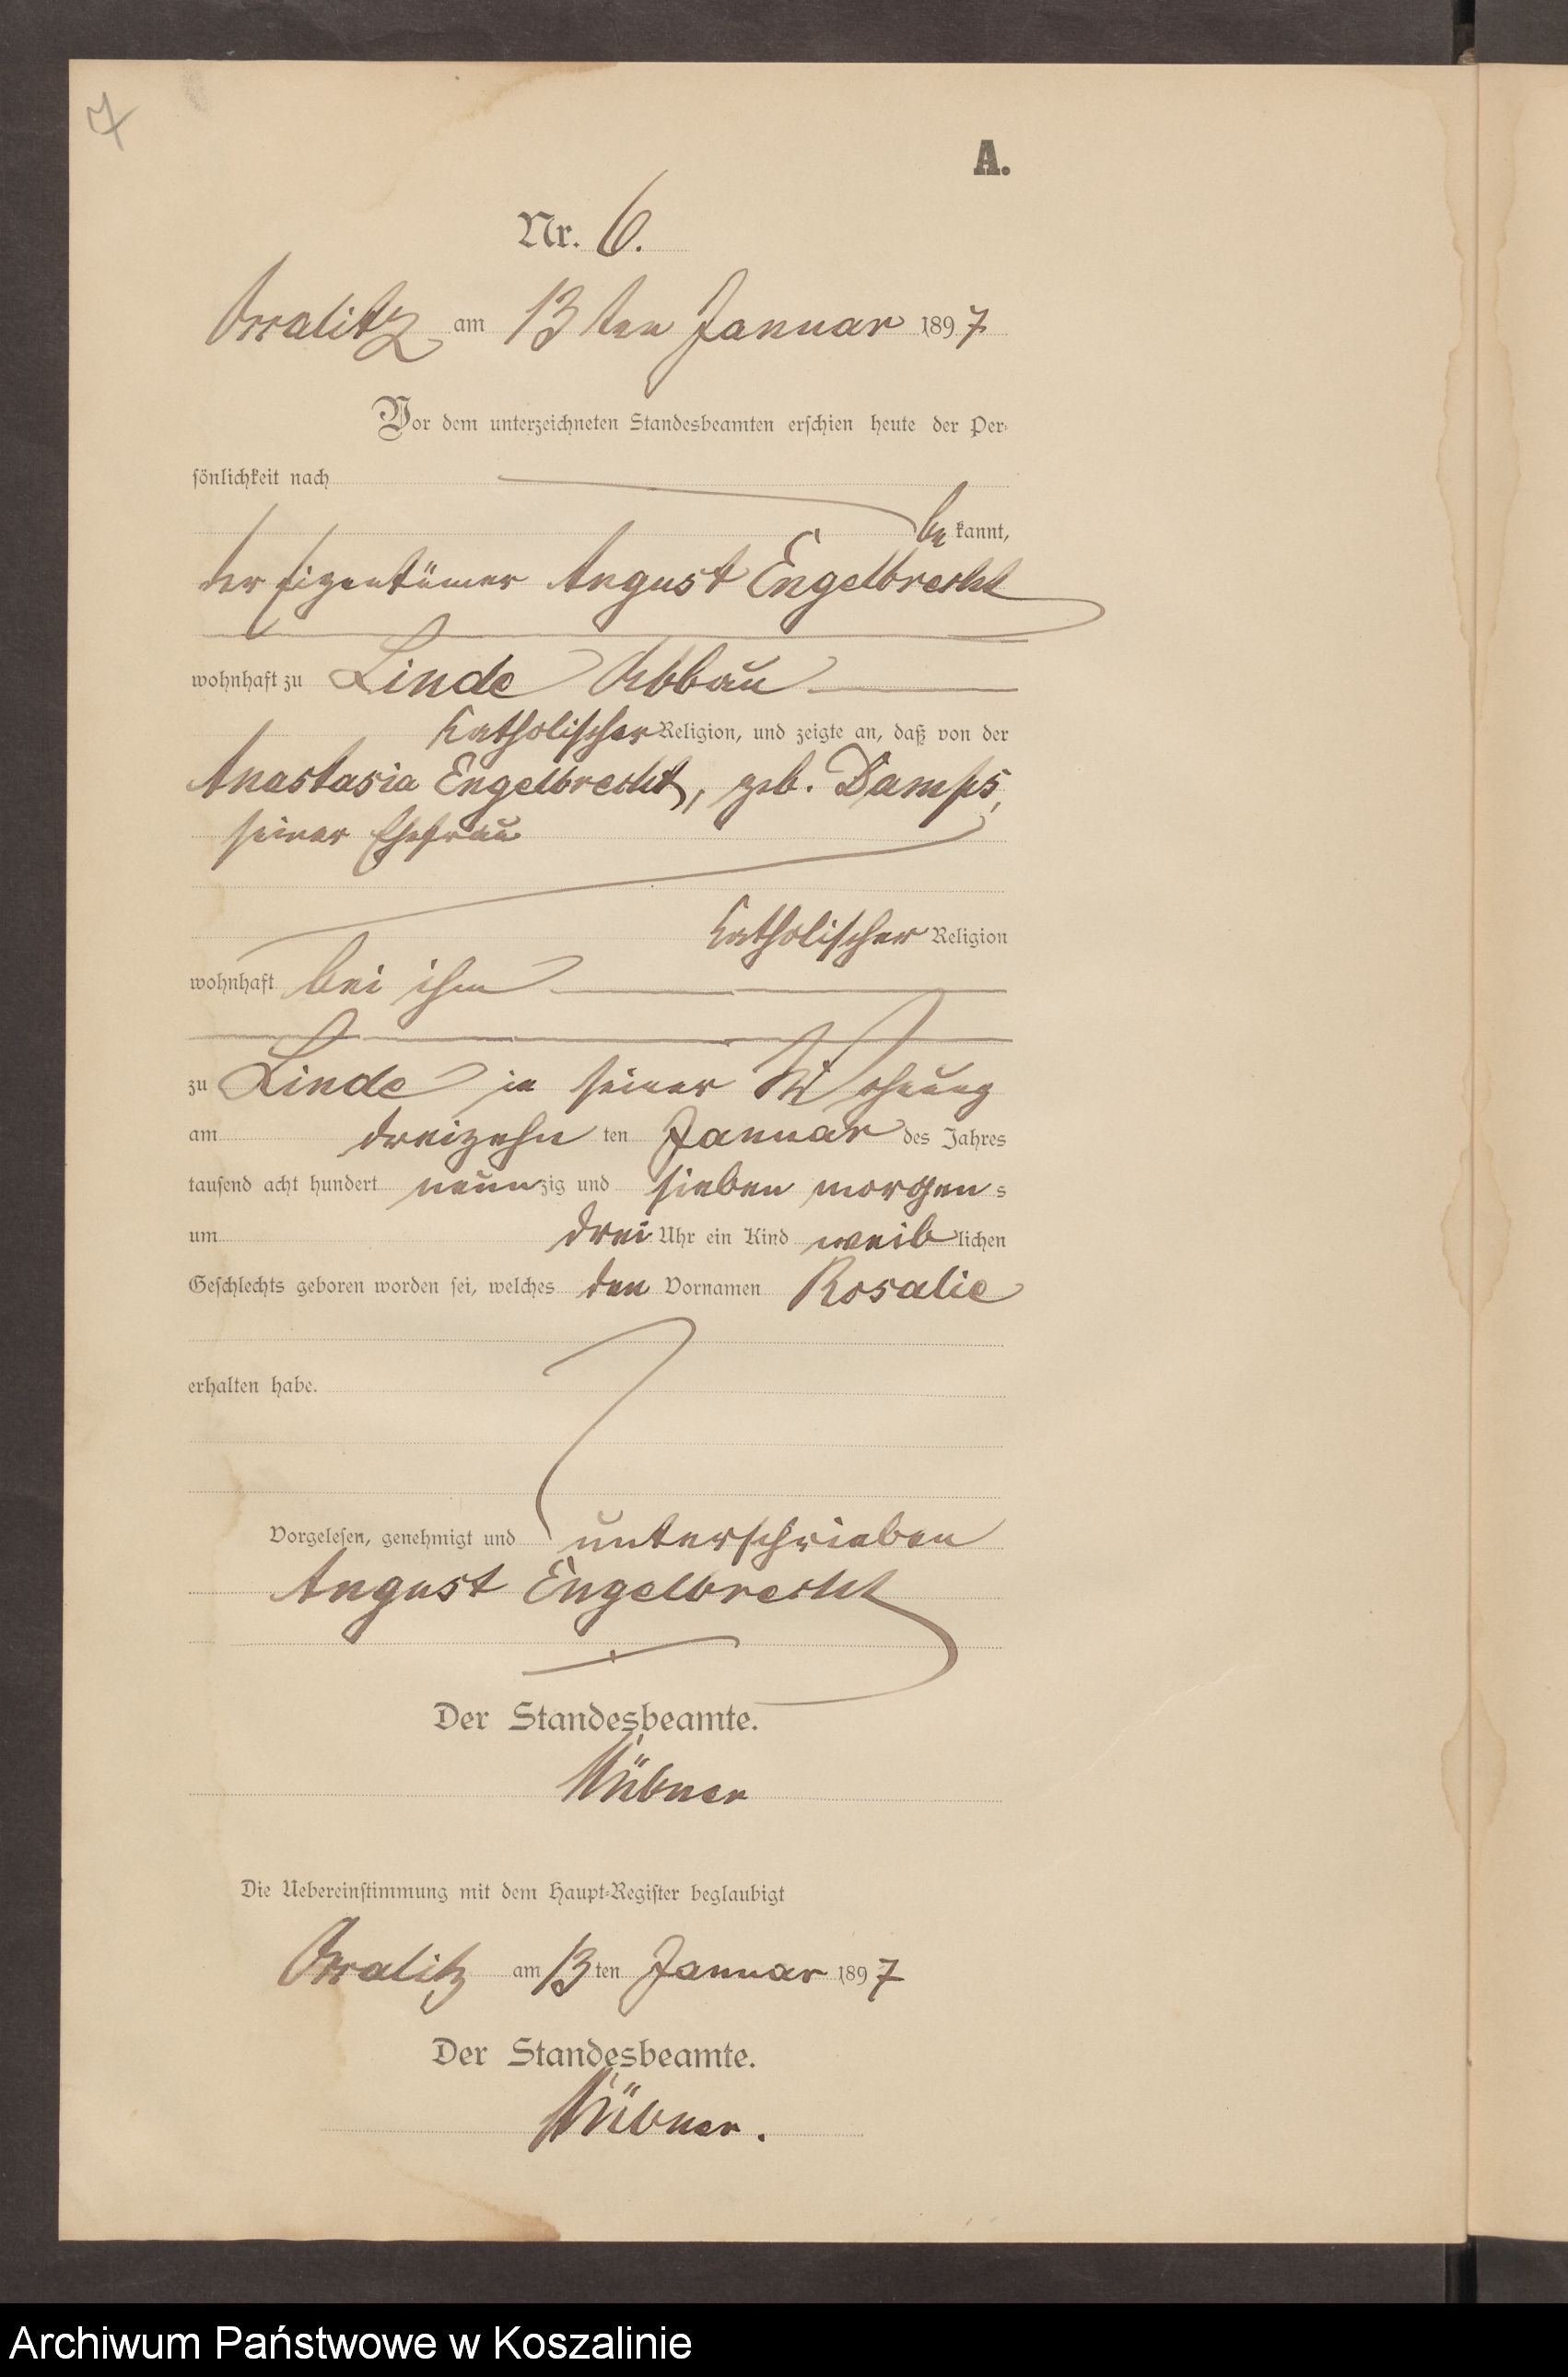 7
A.
Nr. 6.
am 13ten Januar 1897
Vor dem unterzeichneten Standesbeamten erschien heute der Per-
sönlichkeit nach
be kannt,
der Eigentümer August Engelbrecht
wohnhaft zu Linde Abbau
katholischer Religion, und zeigte an, daß von der
Anastasia Engelbrecht, geb. Damps,
seiner Ehefrau
katholischer Religion
wohnhaft bei ihm
zu Linde in seiner Wohnung
am dreizehn ten Januar des Jahres
tausend acht hundert neunzig und sieben morgens
um drei Uhr ein Kind weiblichen
Geschlechts geboren worden sei, welches den Vornamen Rosalie
erhalten habe.
Vorgelesen, genehmigt und unterschrieben
August Engelbrecht
Der Standesbeamte.
Die Uebereinstimmung mit dem Haupt-Register beglaubigt
am 13ten Januar 1897
Der Standesbeamte.
Archiwum Państwowe w Koszalinie